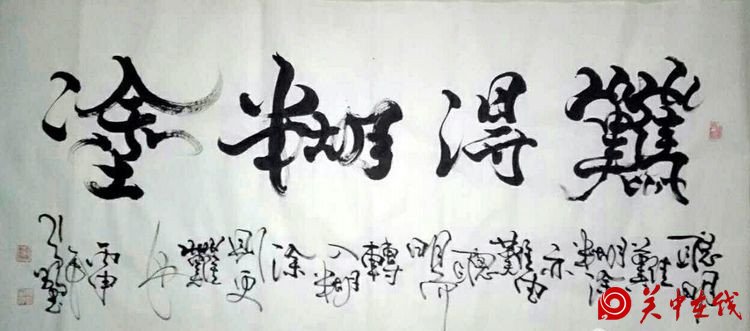 難得糊塗
聰明難糊塗亦難由聰明而轉入糊塗則更難
关中在线